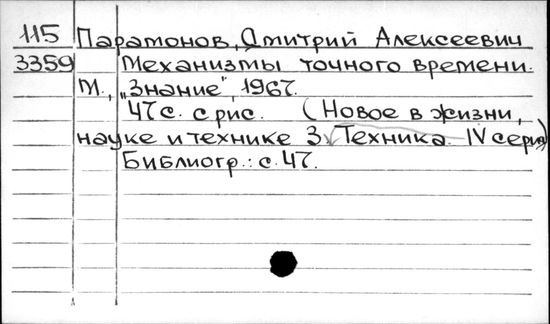 115 Парамонов, Дмитрий Алексеевич
3359 Механизмы точного времени.
М., „Знание", 1967.
47 с. с рис. (Новое в жизни,
науке и технике 3. Техника. IV серия)
Библиогр.: с. 47.